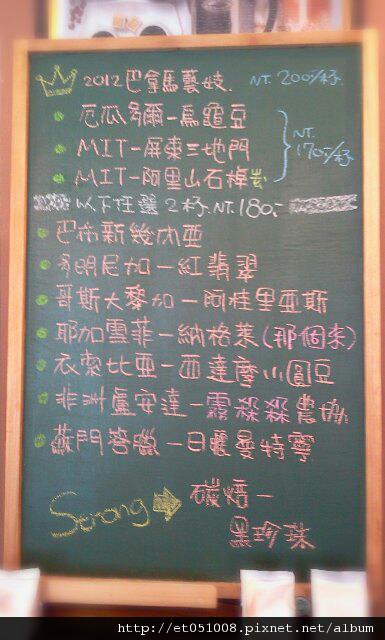 2012巴拿馬藝妓. NT. 200元/杯
厄瓜多爾-烏龜豆
MIT-屏東三地門
MIT-阿里山石棹
NT. 170元/杯
以下任選 2杯 NT.180.-
巴布新幾內亞
多明尼加-紅翡翠
哥斯大黎加-阿桂里亞斯
耶加雪菲-納格萊(那個來)
衣索比亞-西達摩小圓豆
非洲盧安達-霧裊裊農協
蘇門答臘-日曬曼特寧
Strong 碳焙-
黑珍珠
http://et051008.pixnet.net/album